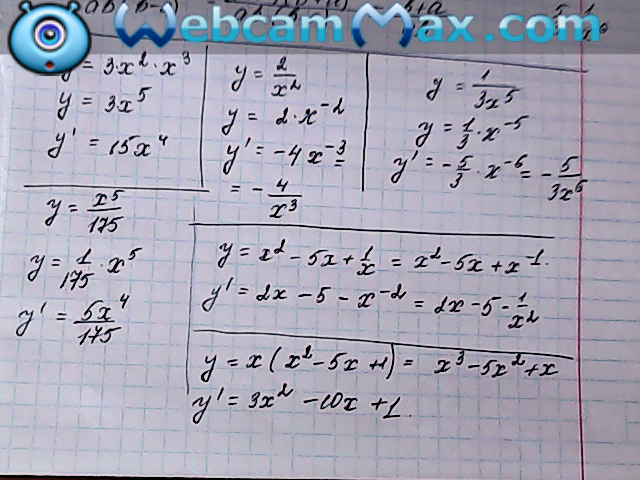 WebcamMax.com
y = 3x² · x³
y = 3x⁵
y' = 15x⁴
y = 2/x²
y = 2·x⁻²
y' = -4x⁻³ =
= - 4/x³
y = 1/3x⁵
y = 1/3 · x⁻⁵
y' = -5/3 · x⁻⁶ = - 5/3x⁶
y = x⁵/175
y = 1/175 · x⁵
y' = 5x⁴/175
y = x² - 5x + 1/x = x² - 5x + x⁻¹.
y' = 2x - 5 - x⁻² = 2x - 5 - 1/x²
y = x(x² - 5x + 1) = x³ - 5x² + x
y' = 3x² - 10x + 1.